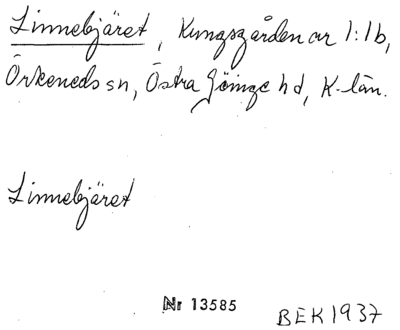 Linnebjäret, Kungsgården ar 1:1b,
Örkeneds sn, Östra Göinge hd, K-län.
Linnebjäret
Nr 13585
BEK 1937